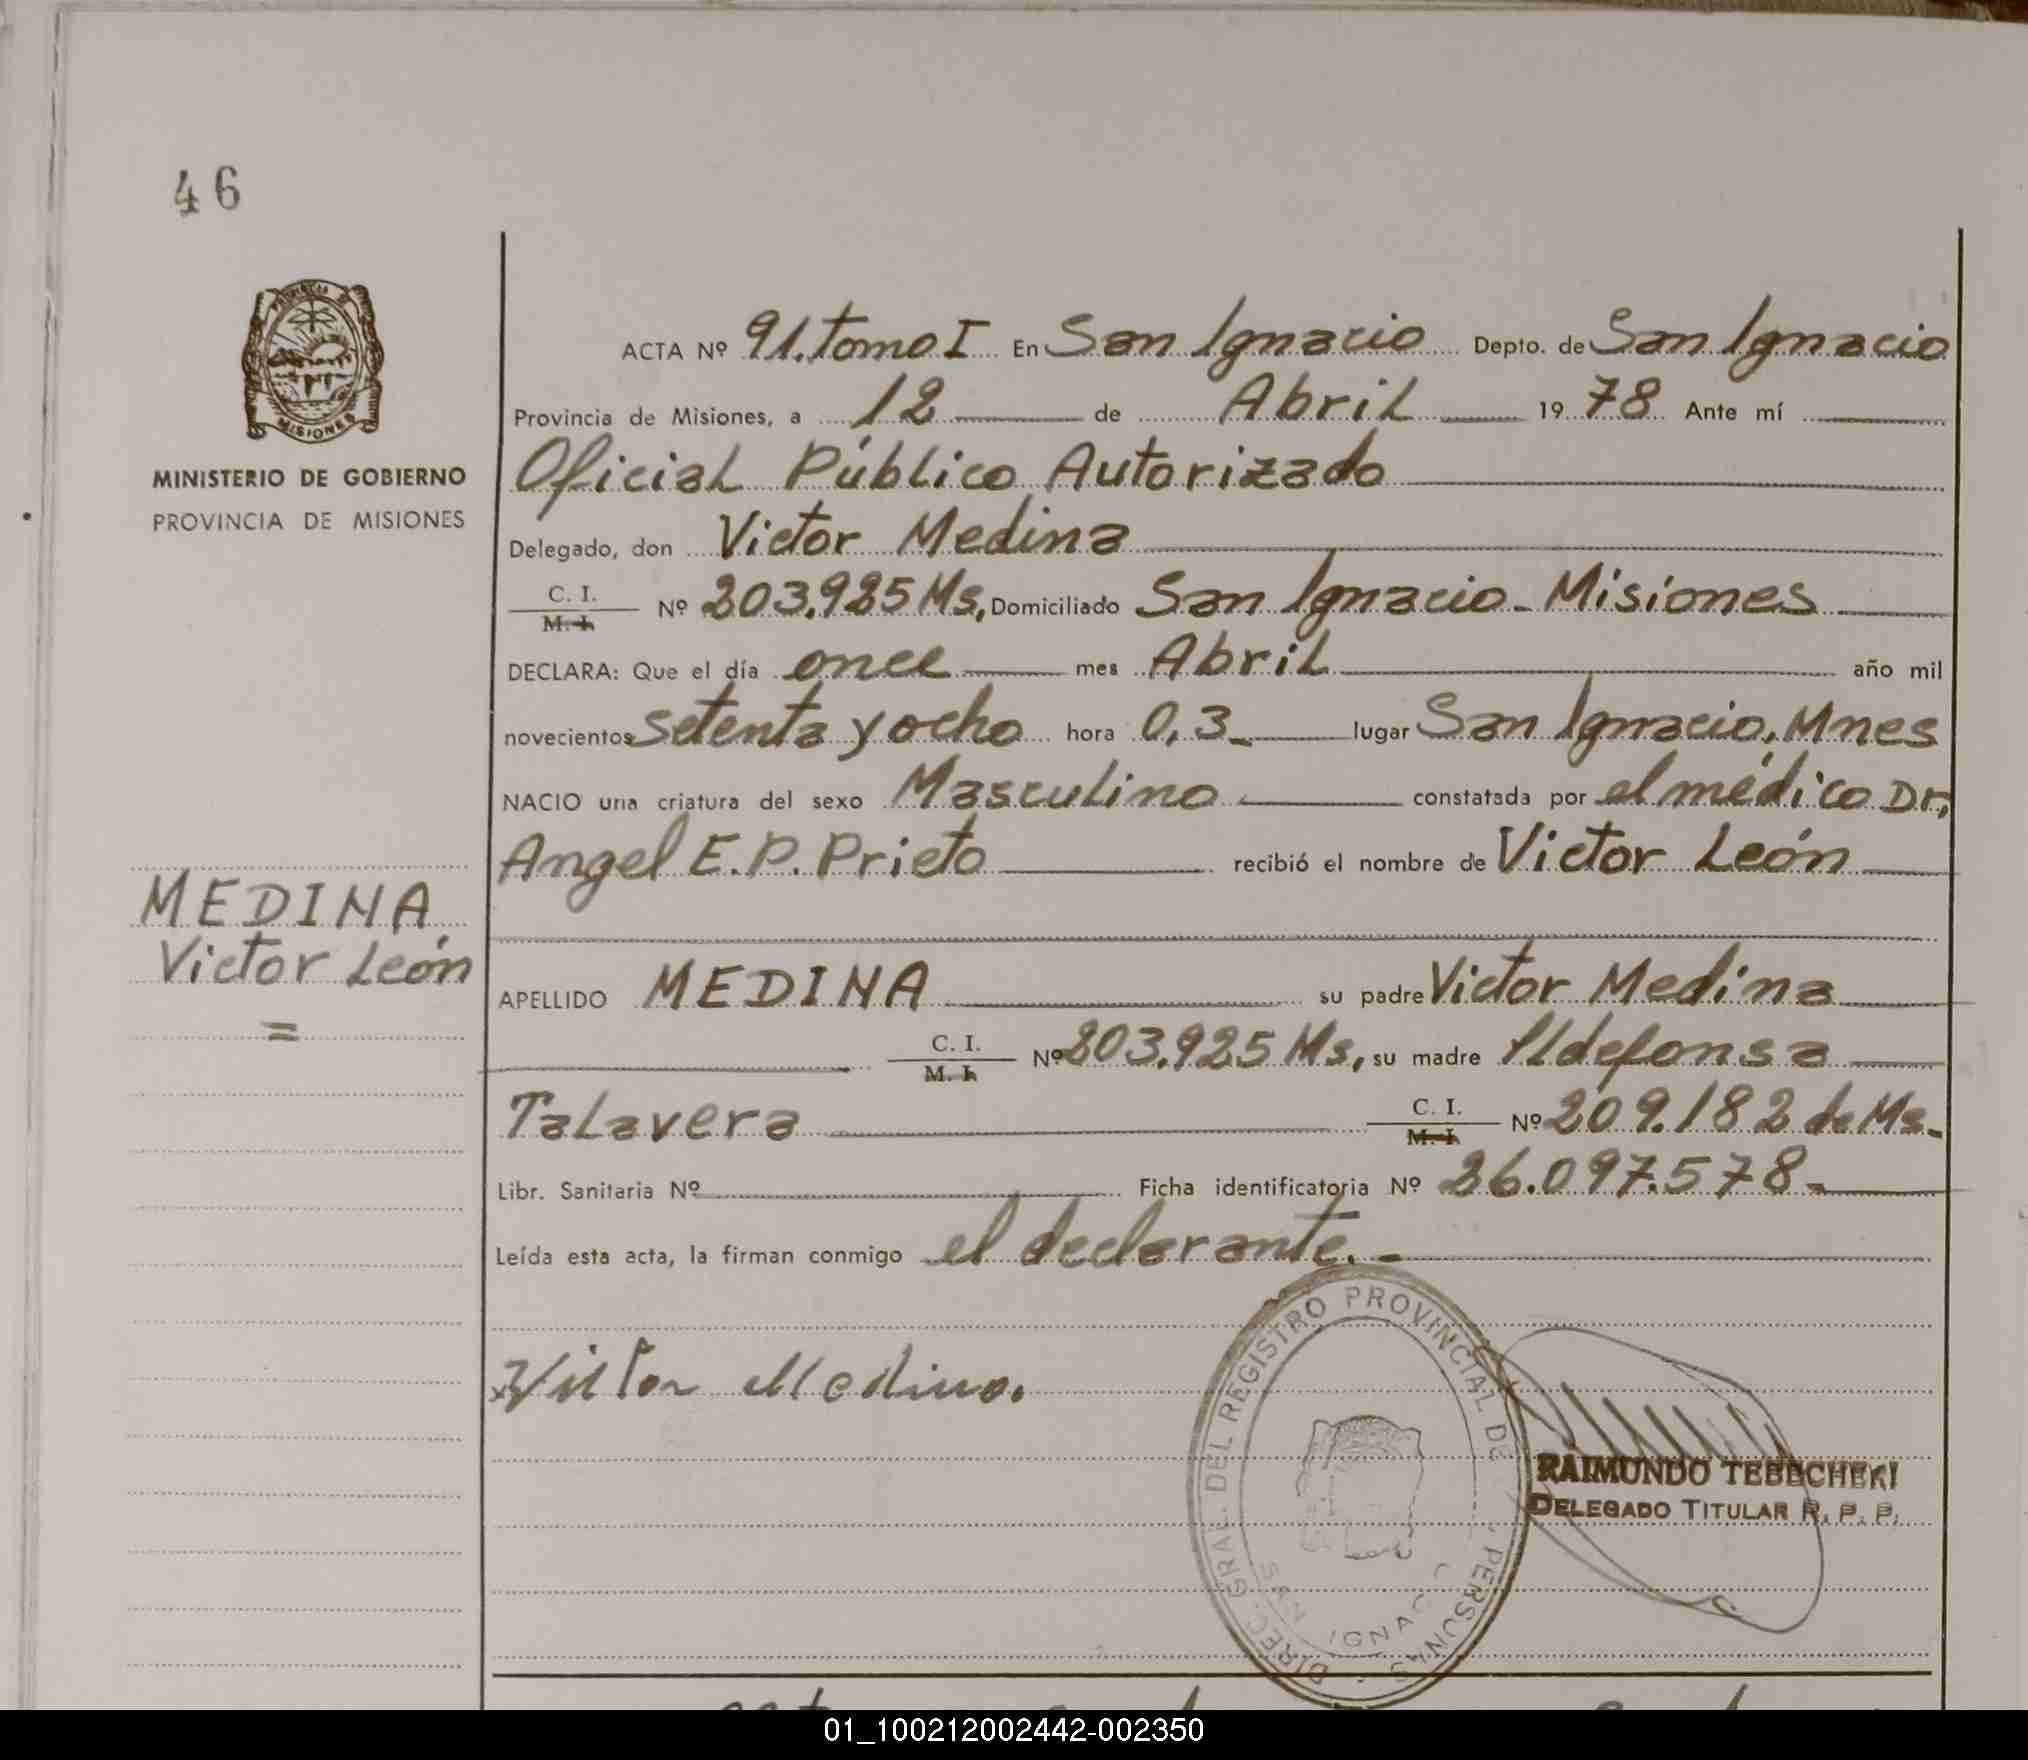 46
PROVINCIA DE
MISIONES
MINISTERIO DE GOBIERNO
PROVINCIA DE MISIONES
MEDINA
Victor León
=
ACTA Nº 91. tomo I En San Ignacio Depto. de San Ignacio
Provincia de Misiones, a 12 de Abril 1978 Ante mí
Oficial Público Autorizado
Delegado, don Victor Medina
C. I.
M. I. Nº 203.925 Ms, Domiciliado San Ignacio - Misiones
DECLARA: Que el día once mes Abril año mil
novecientos setenta y ocho hora 0,3 lugar San Ignacio, Mnes
NACIO una criatura del sexo Masculino constatada por el médico Dr,
Angel E. P. Prieto recibió el nombre de Victor León
APELLIDO MEDINA su padre Victor Medina
C. I.
M. I. Nº 203.925 Ms, su madre Ildefonsa
Talavera C. I.
M. I. Nº 209.182 de Ms.
Libr. Sanitaria Nº Ficha identificatoria Nº 26.097.578
Leída esta acta, la firman conmigo el declarante. -
Victor Medina.
DIREC. GRAL. DEL REGISTRO PROVINCIAL DE PERSONAS
SAN IGNACIO
RAIMUNDO TEBECHERI
DELEGADO TITULAR R. P. P.
01_100212002442-002350